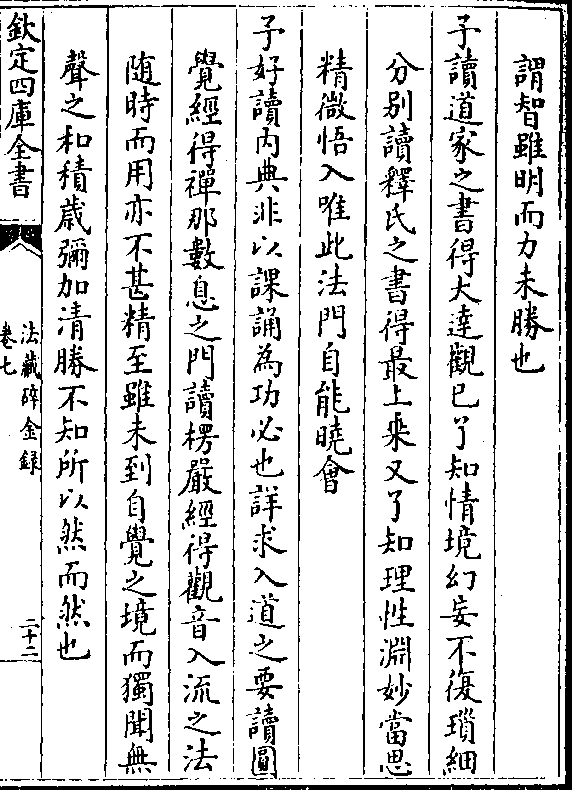 謂智雖明而力未勝也
予讀道家之書得大達觀已了知情境幻妄不復瑣細
分别讀釋氏之書得最上乗又了知理性淵妙當思
精微悟入唯此法門自能曉會
予好讀内典非以課誦為功必也詳求入道之要讀圓
覺經得禪那數息之門讀楞嚴經得觀音入流之法
随時而用亦不甚精至雖未到自覺之境而獨聞無
聲之和積歳彌加清勝不知所以然而然也
欽定四庫全書
法藏碎金録
卷七
二十二